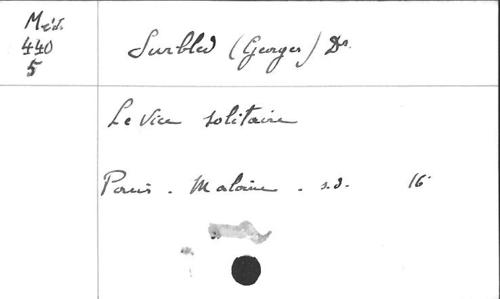 Méd.
440
5
Surbled (Georges) Dr.
Le Vice solitaire
Paris - Maloine - s.d. 16°